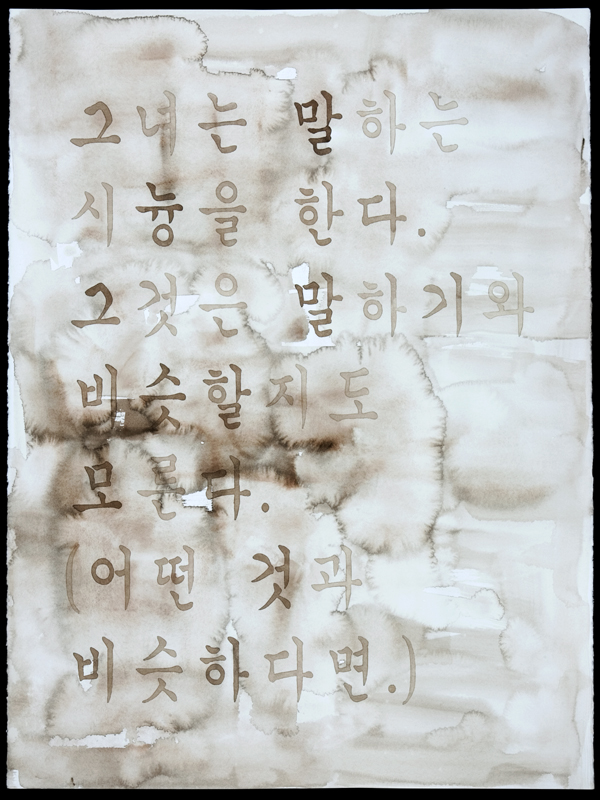 그녀는 말하는
시늉을 한다.
그것은 말하기와
비슷할지도
모른다.
(어떤 것과
비슷하다면.)